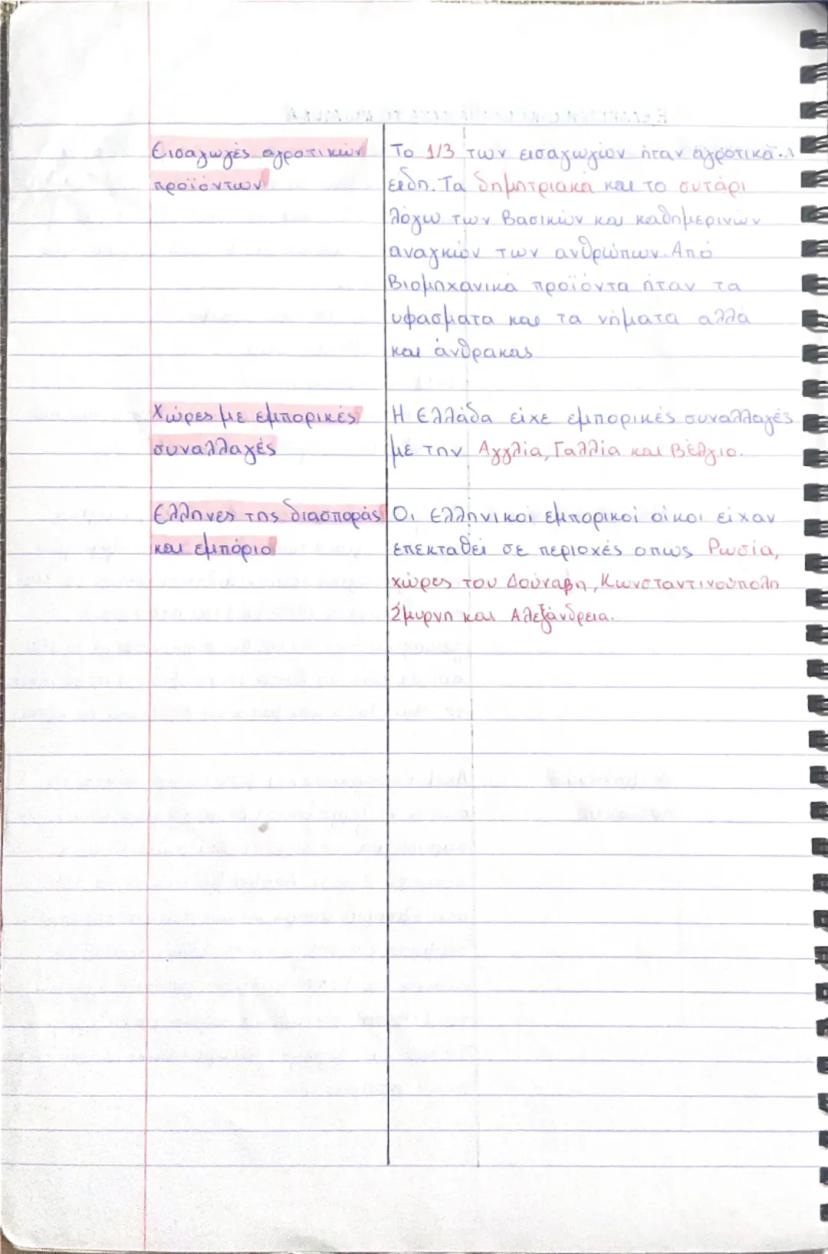 Εισαγωγές αγροτικών
προϊόντων
Το 1/3 των εισαγωγών ήταν αγροτικά
είδη. Τα δημητριακά και το σιτάρι
λόγω των βασικών και καθημερινών
αναγκών των ανθρώπων. Από
βιομηχανικά προϊόντα ήταν τα
υφάσματα και τα νήματα αλλά
και άνθρακας
Χώρες με εμπορικές
συναλλαγές
Η Ελλάδα είχε εμπορικές συναλλαγές
με την Αγγλία, Γαλλία και Βέλγιο.
Έλληνες της διασποράς
και εμπόριο
Οι Ελληνικοί εμπορικοί οίκοι είχαν
επεκταθεί σε περιοχές όπως Ρωσία,
χώρες του Δούναβη, Κωνσταντινούπολη
Σμύρνη και Αλεξάνδρεια.